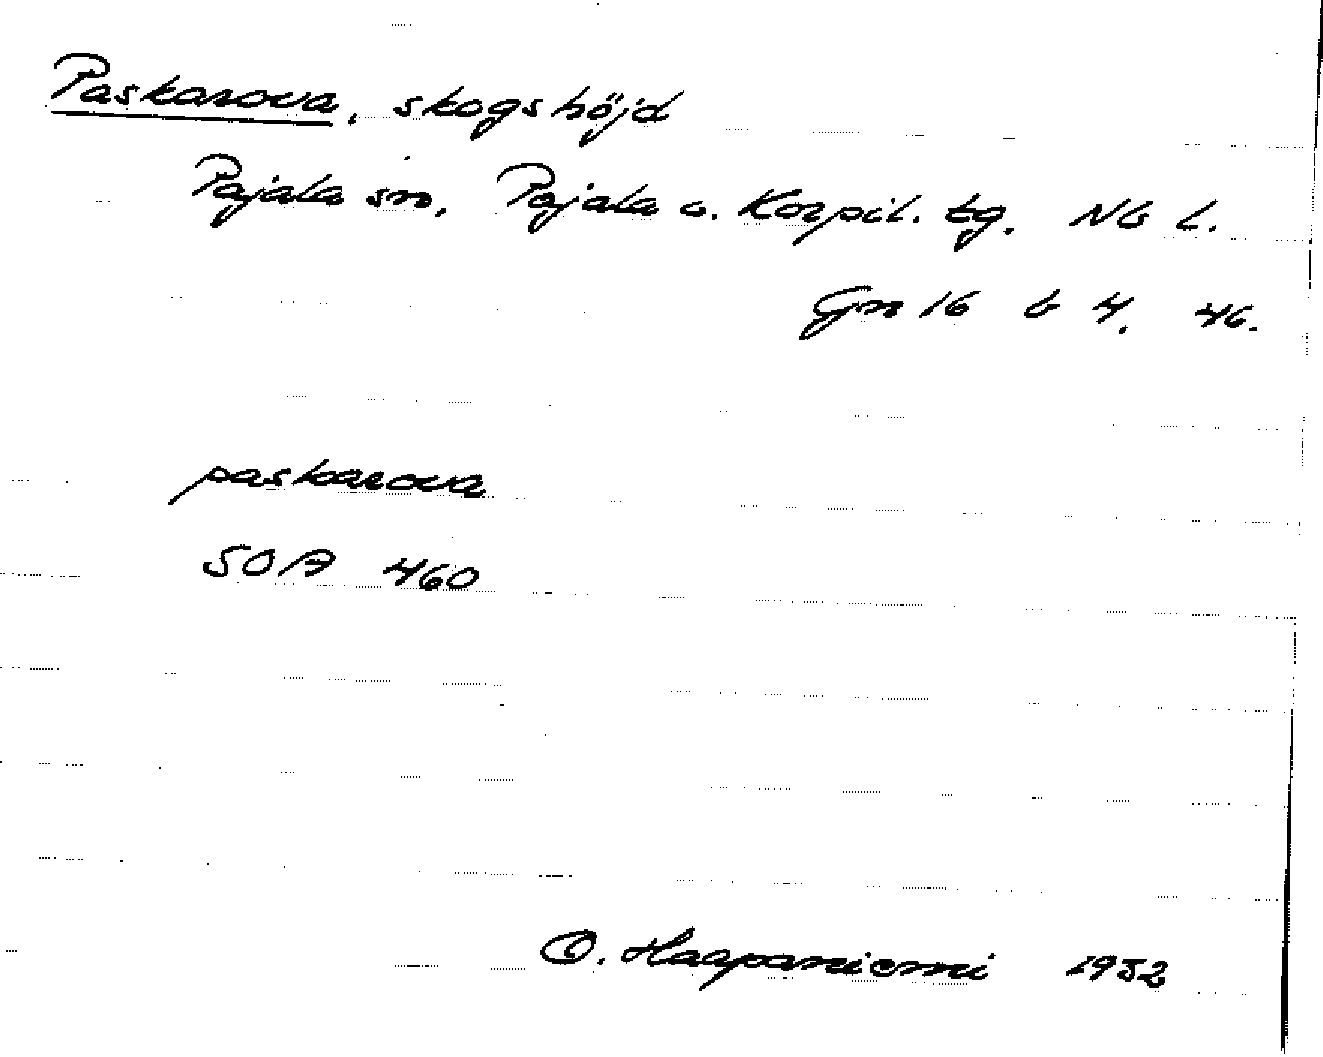 Paskarova, skogshöjd
Pajala sn. Pajala o. Korpil. tg. Nb L.
Gn 16 b 4. 46.
paskarova
SOA 460
O. Haapaniemi 1952